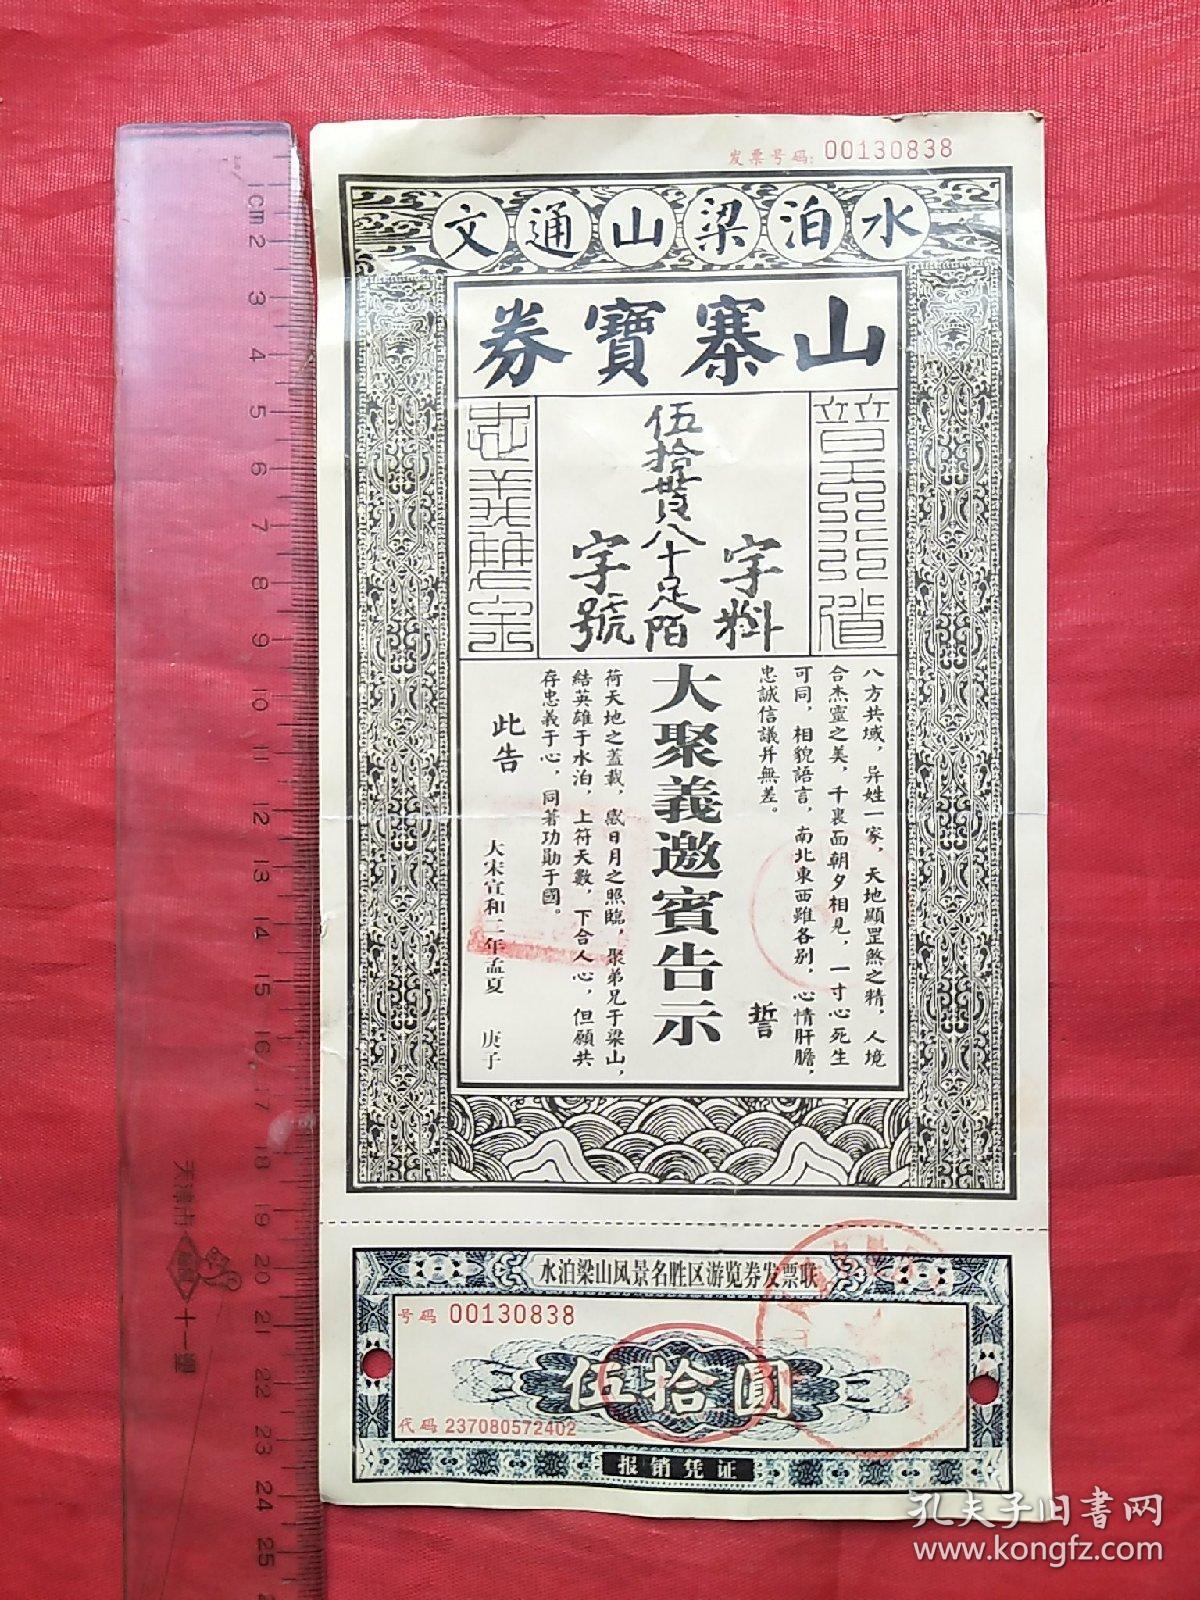 发票号码: 00130838
水泊梁山通文
山寨寳券
普天行道
字料
伍拾貫八十足陌
字號
忠義雙全
八方共域，异姓一家，天地顯罡煞之精，人境
合杰靈之美，千裏面朝夕相見，一寸心死生
可同，相貌語言，南北東西雖各别，心情肝膽，
忠誠信議并無差。
誓
大聚義邀賓告示
荷天地之蓋載，感日月之照臨，聚弟兄于梁山，
結英雄于水泊，上符天數，下合人心，但願共
存忠義于心，同著功勛于國。
此告
大宋宣和二年孟夏 庚子
水泊梁山风景名胜区游览券发票联
号码 00130838
伍拾圆
代码 237080572402
报销凭证
1cm 2 3 4 5 6 7 8 9 10 11 12 13 14 15 16 17 18 19 20 21 22 23 24 25
天津市
十一塑
孔夫子旧书网
www.kongfz.com